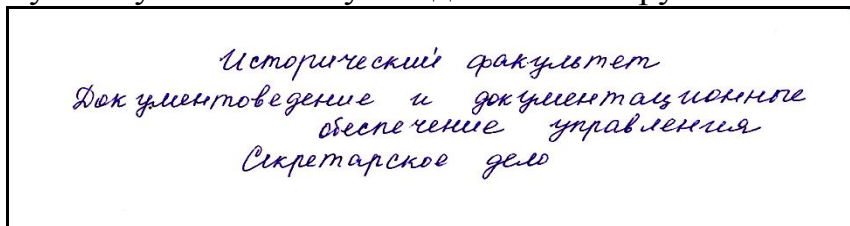 Исторический факультет
Документоведение и документационные
обеспечение управления
Секретарское дело